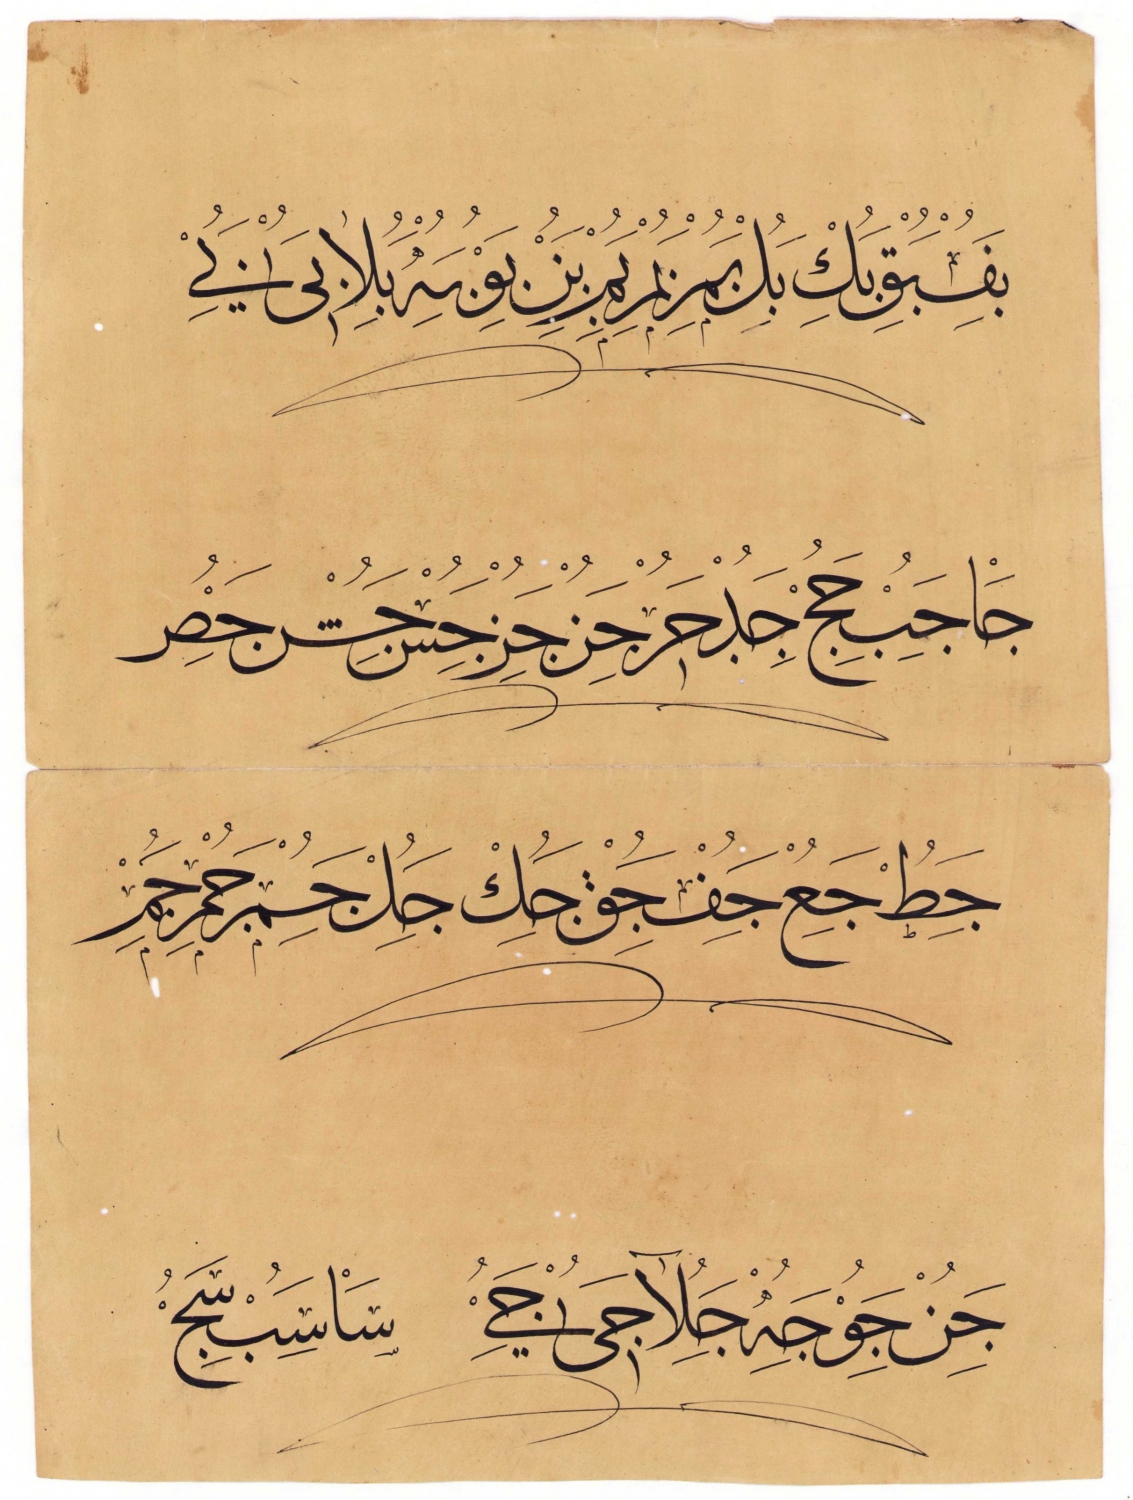 بف بق بك بل بم بم بم بن بو به بلا بى بے
جا جب جج جد جر جس جش جص
جط جع جف جق جك جل جم جم جم
جن جو جه جلا جى جے سا سب سج